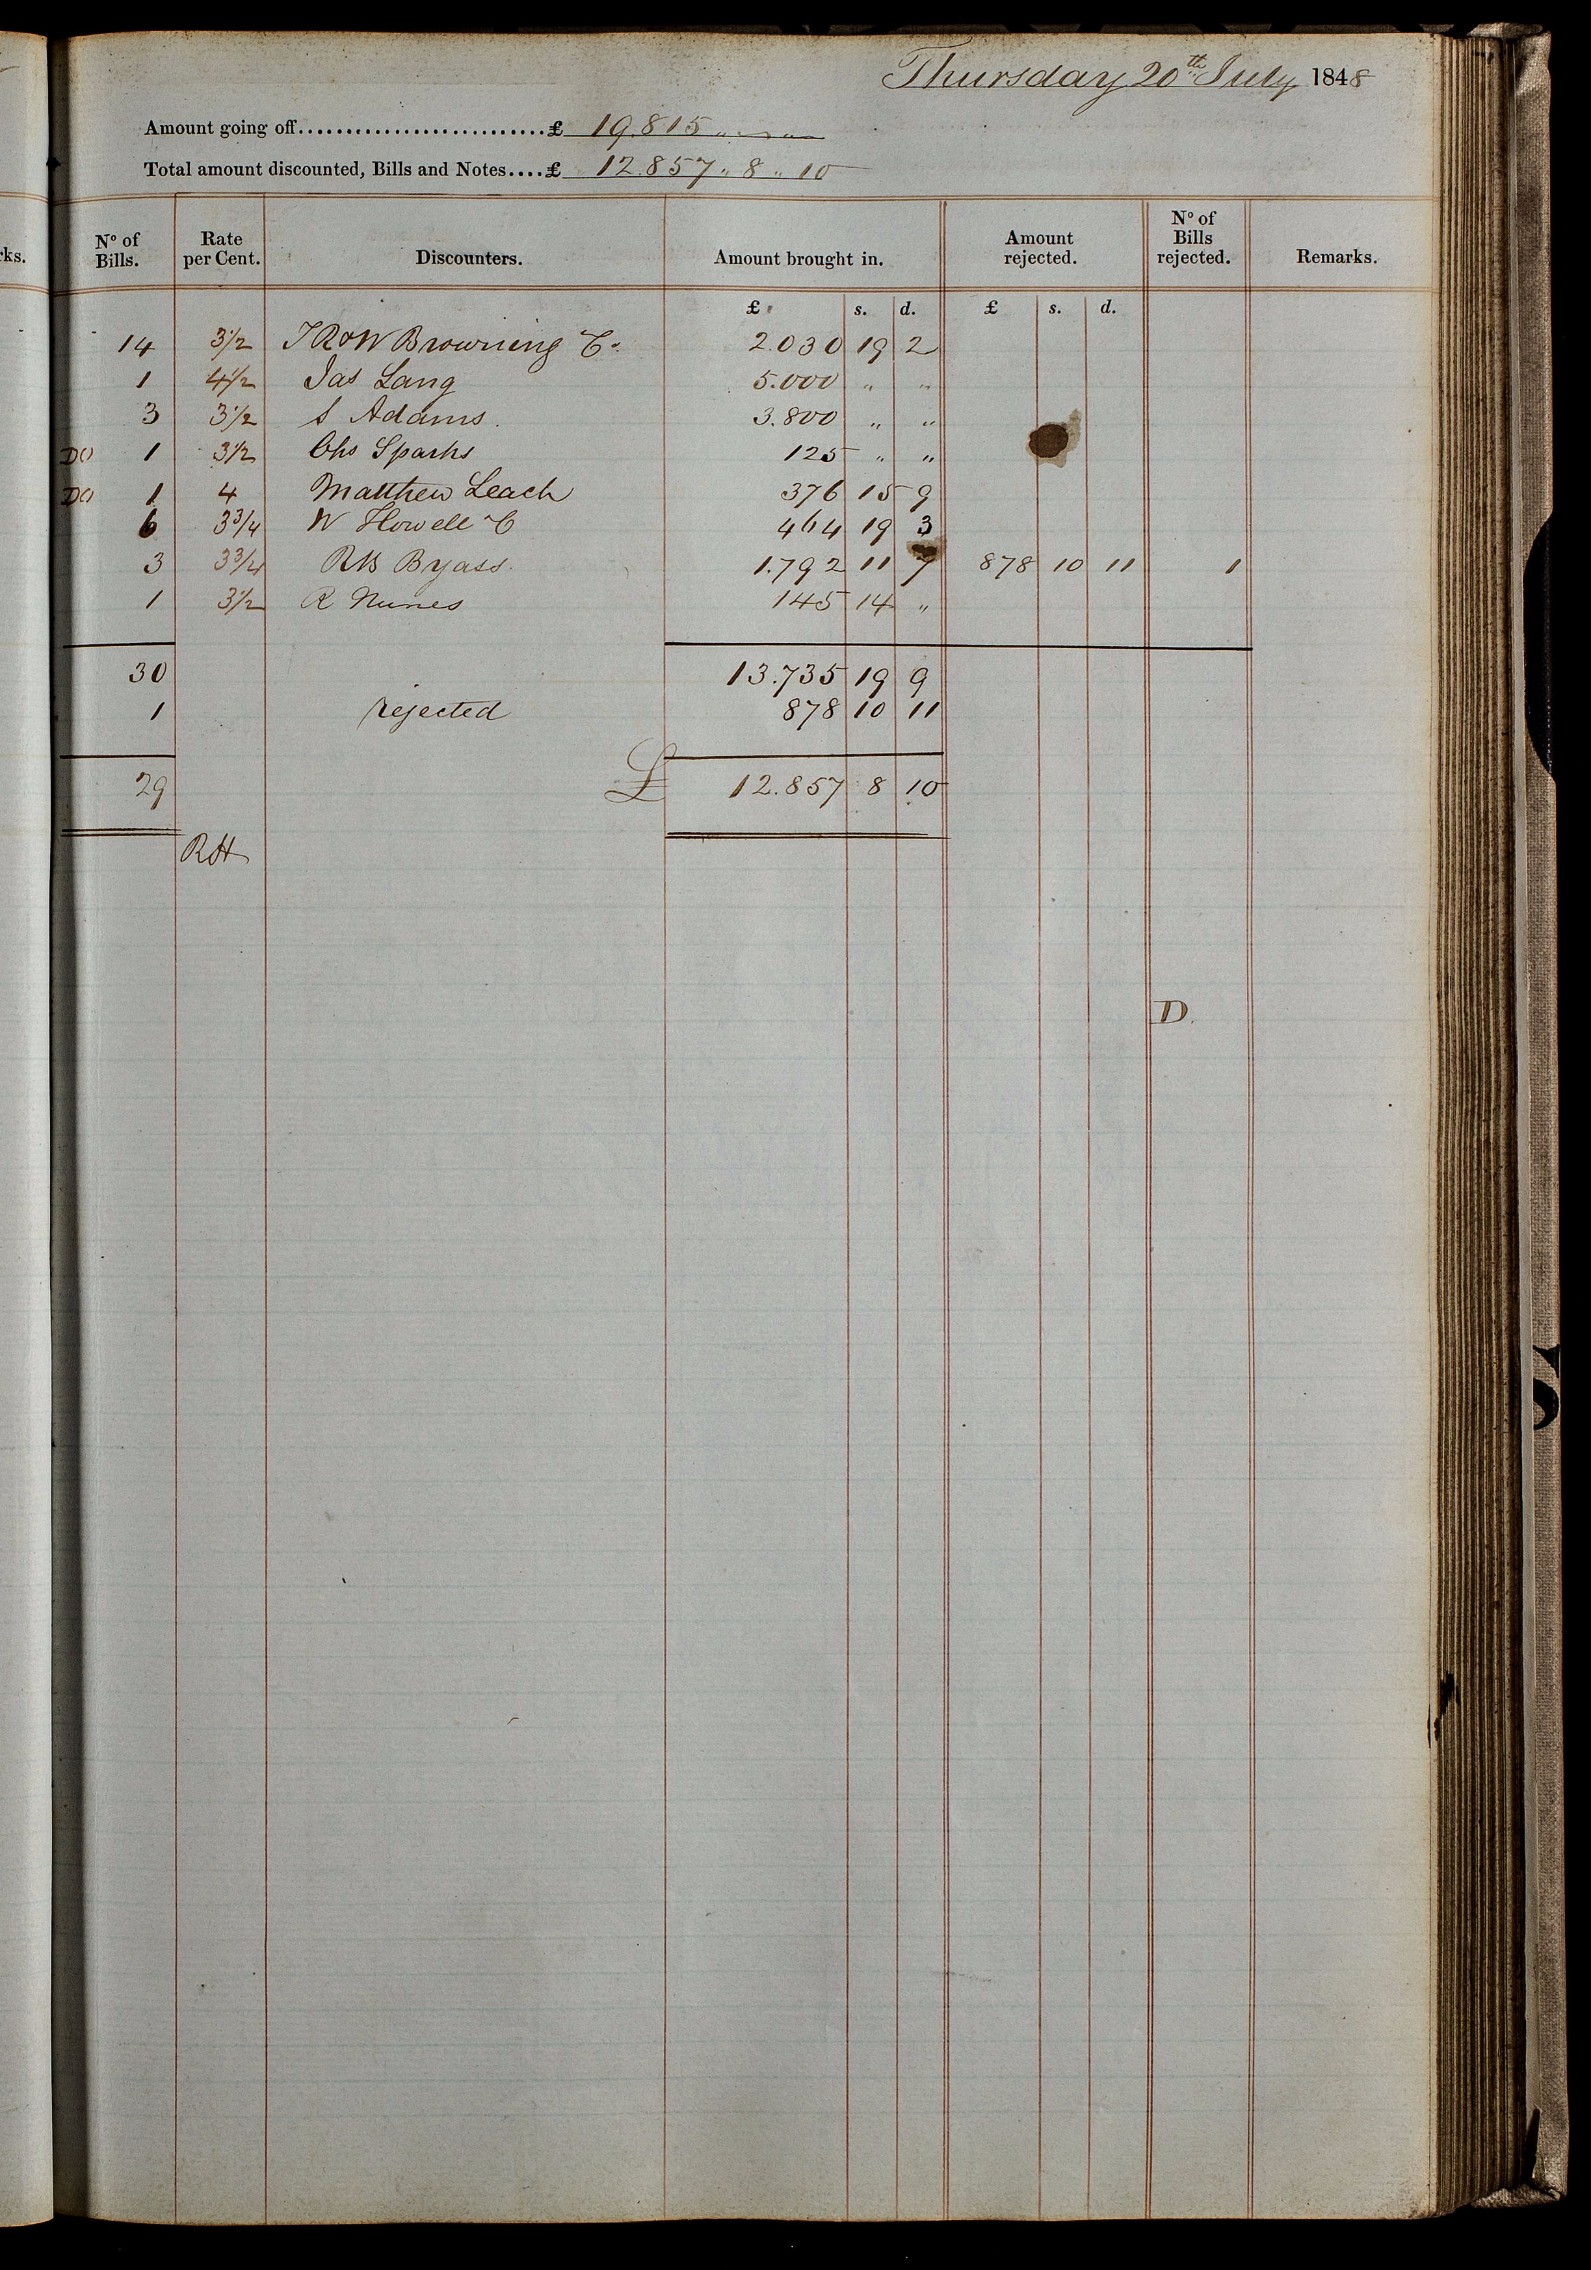 Thursday 20th July 1848
Amount going off...........................£ 19.815 " " "
Total amount discounted, Bills and Notes....£ 12.857 " 8 " 10
rks.
No of Bills. Rate per Cent. Discounters. Amount brought in. Amount rejected. No of Bills rejected. Remarks.
£ s. d. £ s. d.
14 3½ T R & W Browning & Co. 2.030 19 2
1 4½ Jas Lang 5.000 " "
3 3½ S Adams. 3.800 " "
DO 1 3½ Chs Sparks 125 " "
DO 1 4 Matthew Leach 376 15 9
6 3¾ W Howell & C 464 19 3
3 3¾ RB Byass. 1.792 11 7 878 10 11 1
1 3½ R Nunes 145 14 "
30 13.735 19 9
1 rejected 878 10 11
29 £ 12.857 8 10
RH
D.